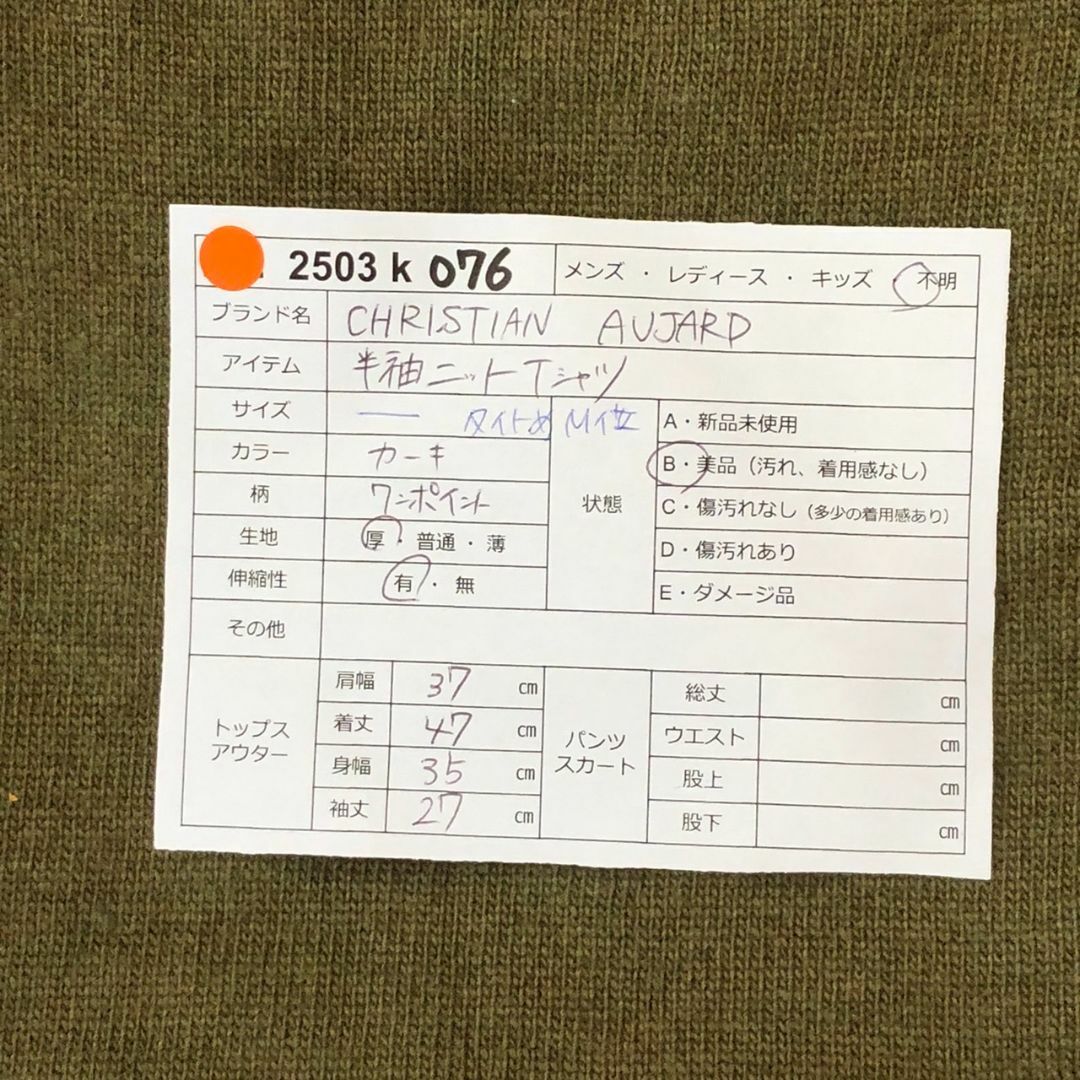 2503 k 076 メンズ ・ レディース ・ キッズ 不明
ブランド名 CHRISTIAN AUJARD
アイテム 半袖ニットTシャツ
サイズ — タイトめ M位
カラー カーキ
柄 ワンポイント
生地 厚・普通・薄
伸縮性 有・無
状態
A・新品未使用
B・美品（汚れ、着用感なし）
C・傷汚れなし（多少の着用感あり）
D・傷汚れあり
E・ダメージ品
その他
トップス
アウター
肩幅 37 cm
着丈 47 cm
身幅 35 cm
袖丈 27 cm
パンツ
スカート
総丈 cm
ウエスト cm
股上 cm
股下 cm